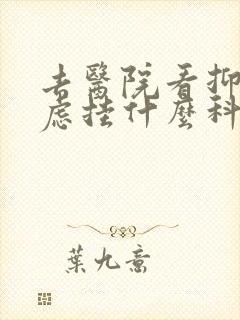 去醫院看抑
慮掛什麼科
葉九意